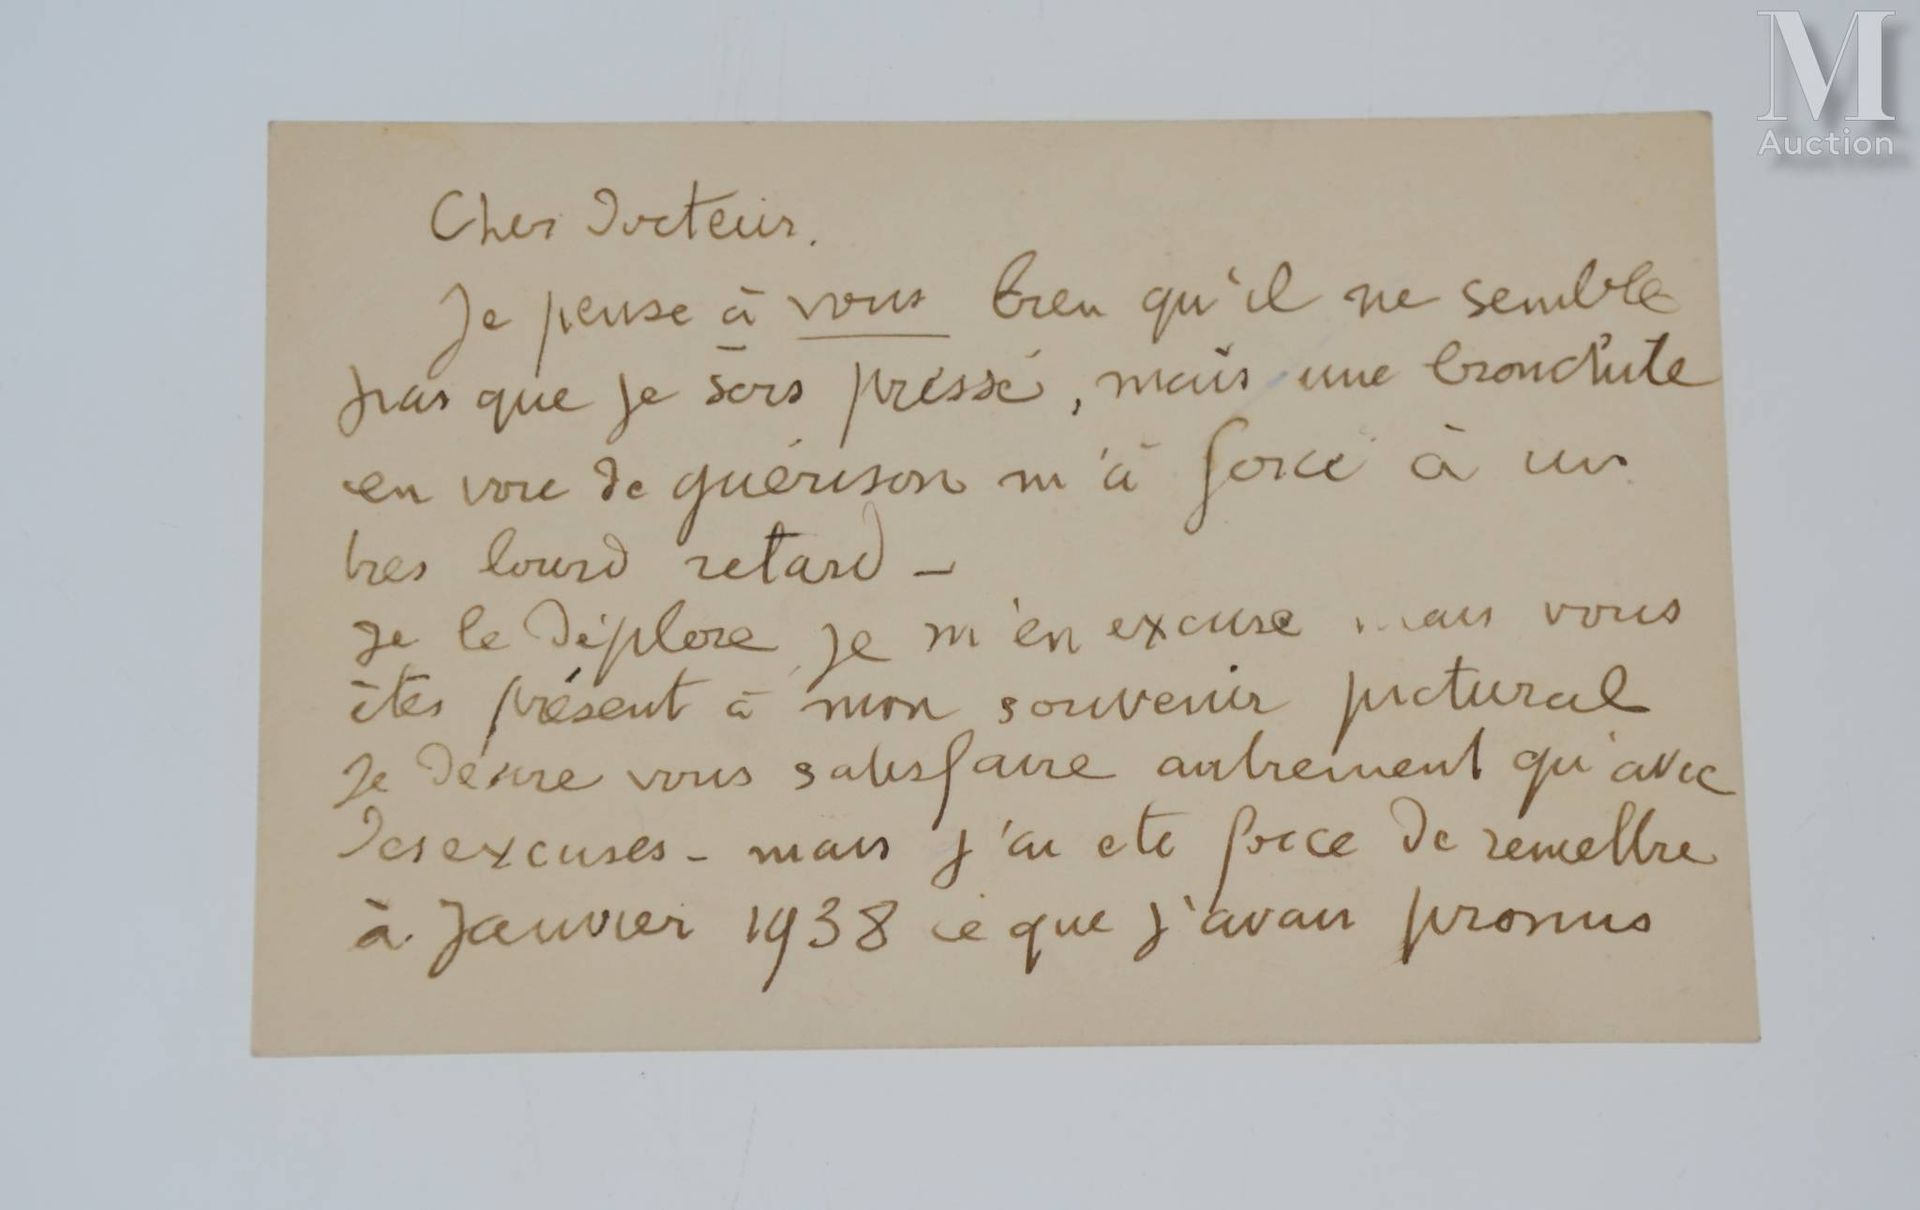 M
Auction
Cher Docteur.
Je pense à vous bien qu'il ne semble
pas que je sois pressé, mais une bronchite
en voie de guérison m'à forcé à un
tres lourd retard -
je le déplore, je m'en excuse mais vous
êtes présent à mon souvenir pictural
je désire vous satisfaire autrement qu'avec
des excuses - mais j'ai ete force de remettre
à Janvier 1938 ce que j'avais promis